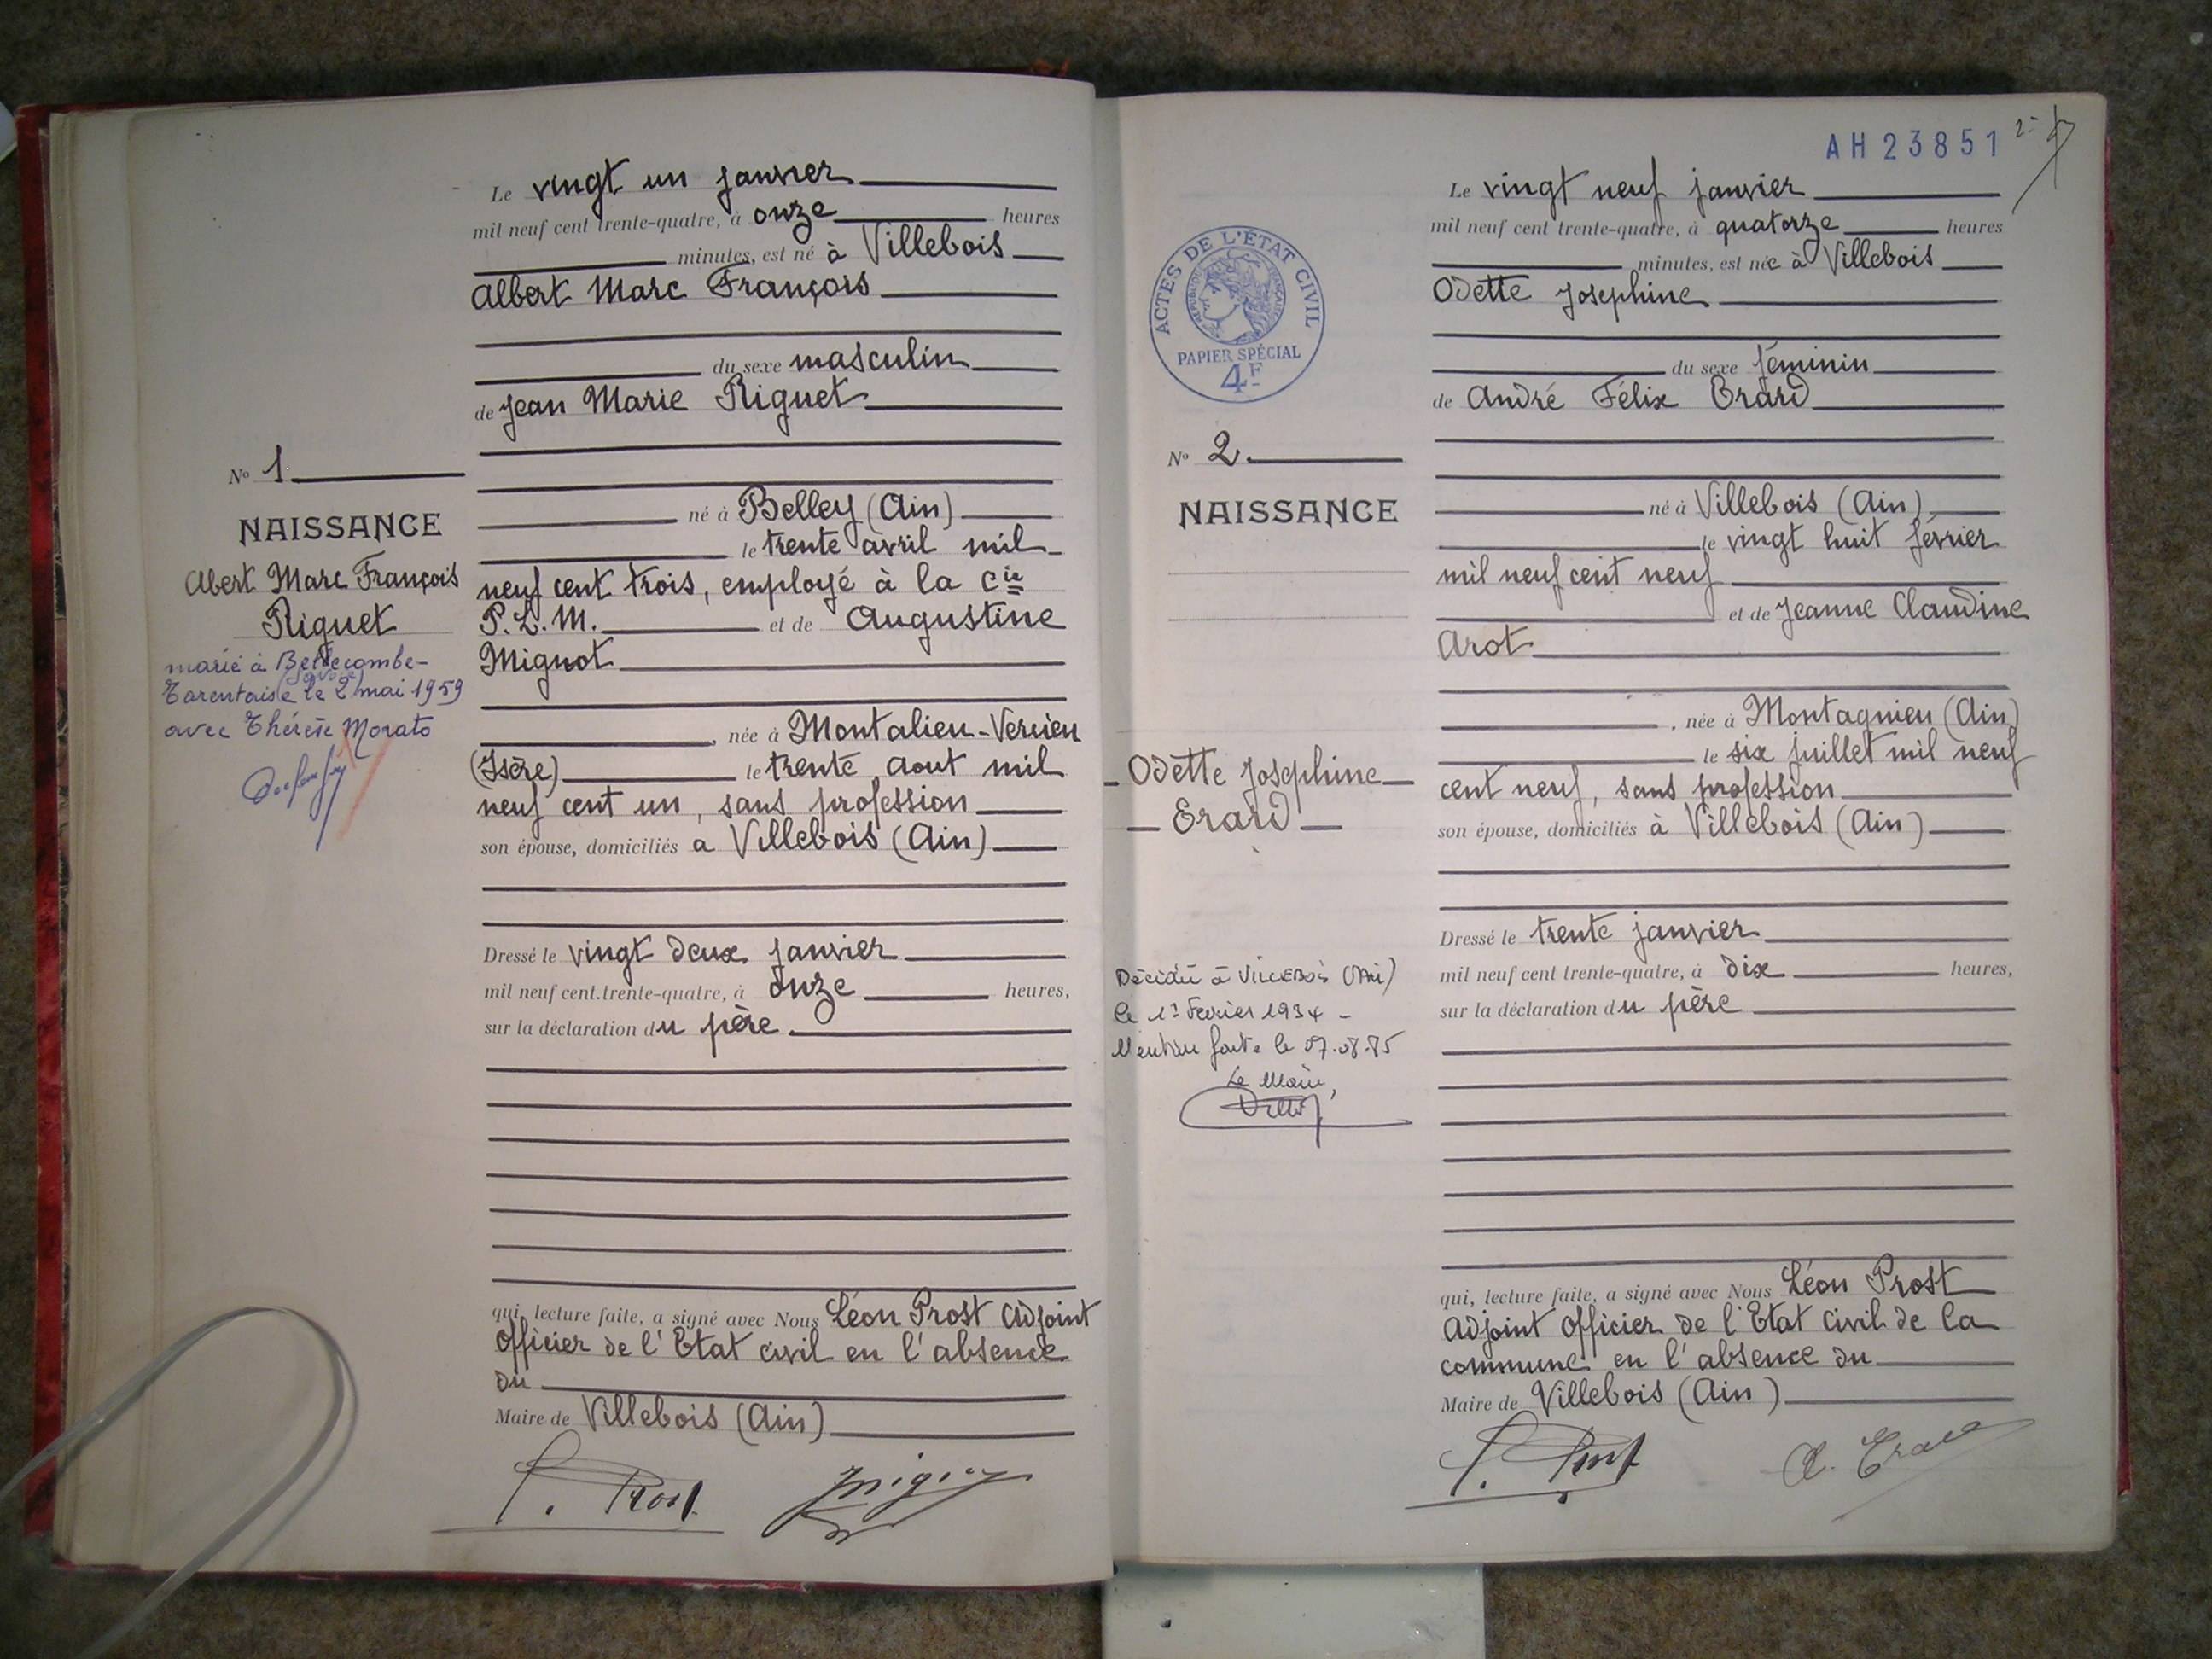 Le vingt un janvier
mil neuf cent trente-quatre, à onze heures
minutes, est né à Villebois
Albert Marc François
du sexe masculin
de Jean Marie Riguet
né à Belley (Ain)
le trente avril mil
neuf cent trois, employé à la Cie
P.L.M. et de Augustine
Mignot
née à Montalieu-Vercieu
(Isère) le trente aout mil
neuf cent un, sans profession
son épouse, domiciliés a Villebois (Ain)
Dressé le vingt deux janvier
mil neuf cent trente-quatre, à onze heures,
sur la déclaration du père
qui, lecture faite, a signé avec Nous Léon Prost Adjoint
Officier de l'Etat civil en l'absence
du
Maire de Villebois (Ain)
L. Prost
No 1
NAISSANCE
Abert Marc François
Riguet
marié à Bellecombe-
Tarentaise (Savoie) le 2 mai 1959
avec Thérèse Morato
AH23851
Le vingt neuf janvier
mil neuf cent trente-quatre, à quatorze heures
minutes, est née à Villebois
Odette Josephine
du sexe féminin
de André Félix Erard
né à Villebois (Ain)
le vingt huit février
mil neuf cent neuf
et de Jeanne Claudine
Arot
née à Montagnieu (Ain)
le six juillet mil neuf
cent neuf, sans profession
son épouse, domiciliés à Villebois (Ain)
Dressé le trente janvier
mil neuf cent trente-quatre, à dix heures,
sur la déclaration du père
qui, lecture faite, a signé avec Nous Léon Prost
Adjoint Officier de l'Etat civil de la
commune en l'absence du
Maire de Villebois (Ain)
L. Prost A. Erard
ACTES DE L'ÉTAT CIVIL
RÉPUBLIQUE FRANÇAISE
PAPIER SPÉCIAL
4F
No 2
NAISSANCE
Odette Josephine
Erard
Décédée à VILLEBOIS (Ain)
le 1er Fevrier 1934
Mention faite le 07.08.85
Le Maire,